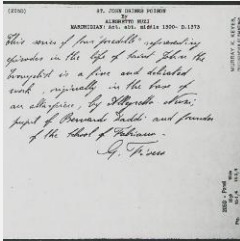 (2280)
ST. JOHN DRINKS POISON
by
ALEGRETTO NUZI
MARCHIGIAN: Act. abt. middle 1300- D.1373
This series of four "predelle" representing
episodes in the life of Saint John the
Evangelist is a fine and delicated
work, originally in the base of
an altarpiece, by Allegretto Nuzi,
pupil of Bernardo Daddi and founder
of the School of Fabriano.
G. Fiocco
MURRAY K. KEYES,